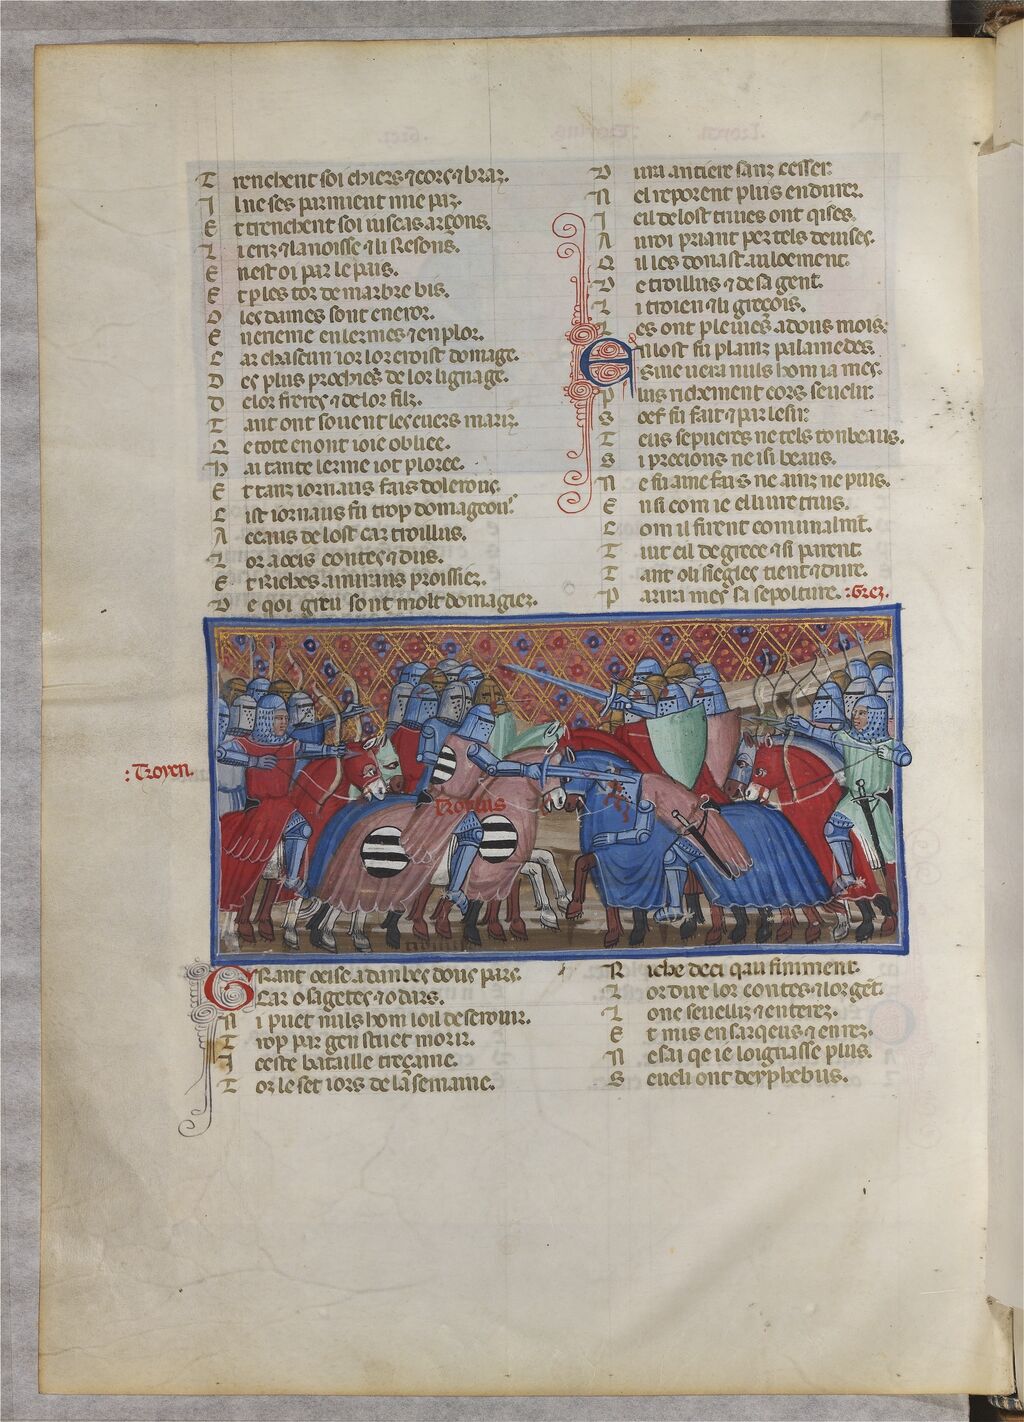 Trenchent soi chiers ⁊ cors ⁊ braz.
Il ne ses parmient mie paz.
Et trenchent soi iusc as arçons.
Li criz ⁊ la noisse ⁊ li
En est oi par le pais.
Et ples tor de marbre bis.
O les dames sont en eror.
E uencine en lermes ⁊ en plor.
Car chascun ior lor croist domage.
Des plus prochies de lor lignage.
De lor freres ⁊ de lor filz.
Tant ont souent les cuers mariz.
Qe tote en ont ioie obliee.
Hai tante lerme i ot ploree.
Et tanz iornaus fais dolerous.
Cist iornaus fu trop domageous.
A ceaus de lost car troillus.
Lor a ocis contes ⁊ dus.
Et riches amiraus proissiez.
De qoi greu sont molt domagiez.
Dura antiere sanz cesser.
Nel reporent plus endurer.
Icil de lost triues ont qises.
A mroi priant per tels deuises.
Qil les donast auloement.
De troillus ⁊ de sa gent.
Li troien ⁊ li greçois.
Les ont pleuies a dous mois.
En lost fu plainz palamedes
Sine uera nuls hom ia mes.
Plus richement cors seuelir.
Soef fu fait ⁊ par lesir
Teus sepucres ne tels tonbeaus.
Si precious ne isi beaus.
Ne fu ainc fais ne ainz ne puis.
Ensi com ie el liure truis.
Com il furent comunalmt.
Tuit cil de grece ⁊ si parent.
Tant o li siegles tient ⁊ dure.
Parira mes sa sepolture. :Grez.
:Troyen.
Troylus
Grant ocise a dambes dous pars.
Car o sagetes ⁊ o dars.
Ni puet nuls hom loil descourir.
Trop par gen stuet morir.
Iceste bataille treçaine.
Tor le set iors de la semaine.
Riche deci qau finiment.
Lor dux lor contes ⁊ lor get.
Lont seuelliz ⁊ enterez.
Et mis en sarqeus ⁊ en rez.
Ne sai qe ie loignasse plus.
Seueli ont deyphebus.